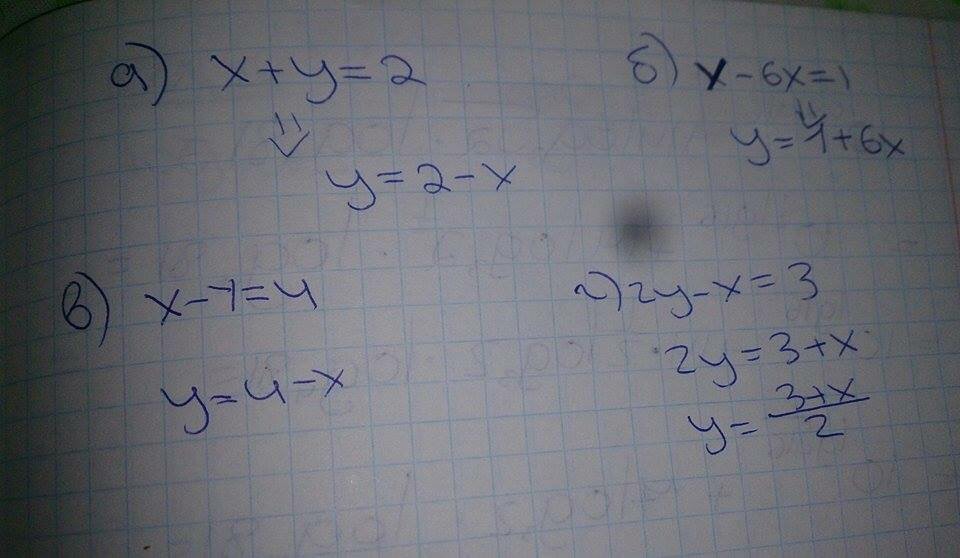 а) x+y=2
⇓
y=2-x
б) y-6x=1
⇓
y=1+6x
в) x-7=4
y=4-x
г) 2y-x=3
2y=3+x
y=\frac{3+x}{2}